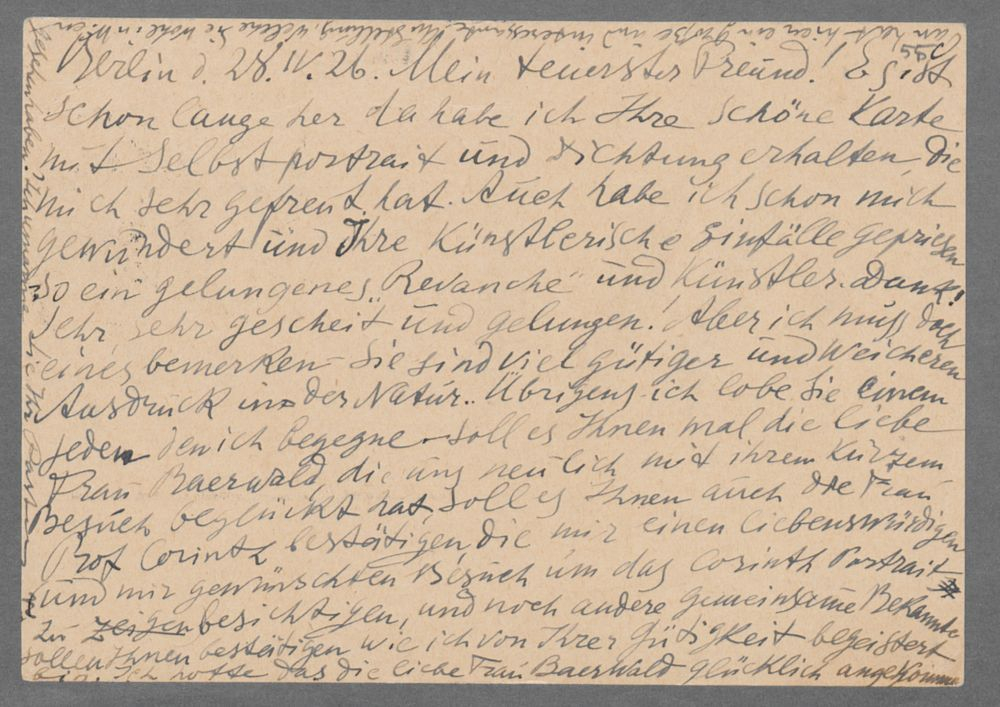 Berlin d. 28.IV.26. Mein teuerster Freund! Es ist
schon lange her da habe ich Ihre schöne Karte
mit Selbstportrait und Dichtung erhalten, die
mich sehr gefreut hat. Auch habe ich schon mich
gewundert und Ihre Künstlerische Einfälle gepriesen
so ein gelungenes „Revanche" und Künstler. Dank!
Sehr, sehr gescheit und gelungen! Aber ich muss doch
eines bemerken – Sie sind viel gütiger und Weicheren
Ausdruck in der Natur. Übrigens ich lobe Sie einem
jeden den ich begegne – soll es Ihnen mal die liebe
Frau Baerwald, die uns neulich mit ihrem Kurzem
Besuch beglückt hat, soll es Ihnen auch die Frau
Prof Corinth bestätigen, die mir einen liebenswürdigen
und mir gewünschten Besuch um das Corinth Portrait
zu zeigen besichtigen, und noch andere gemeinsame Bekannte
sollen Ihnen bestätigen wie ich von Ihrer Gütigkeit begeistert
bin. Ich hoffe das die liebe Frau Baerwald glücklich angekommen
hier ein große und interessante Ausstellung, welche Sie wohl in Wien
gesehen haben.